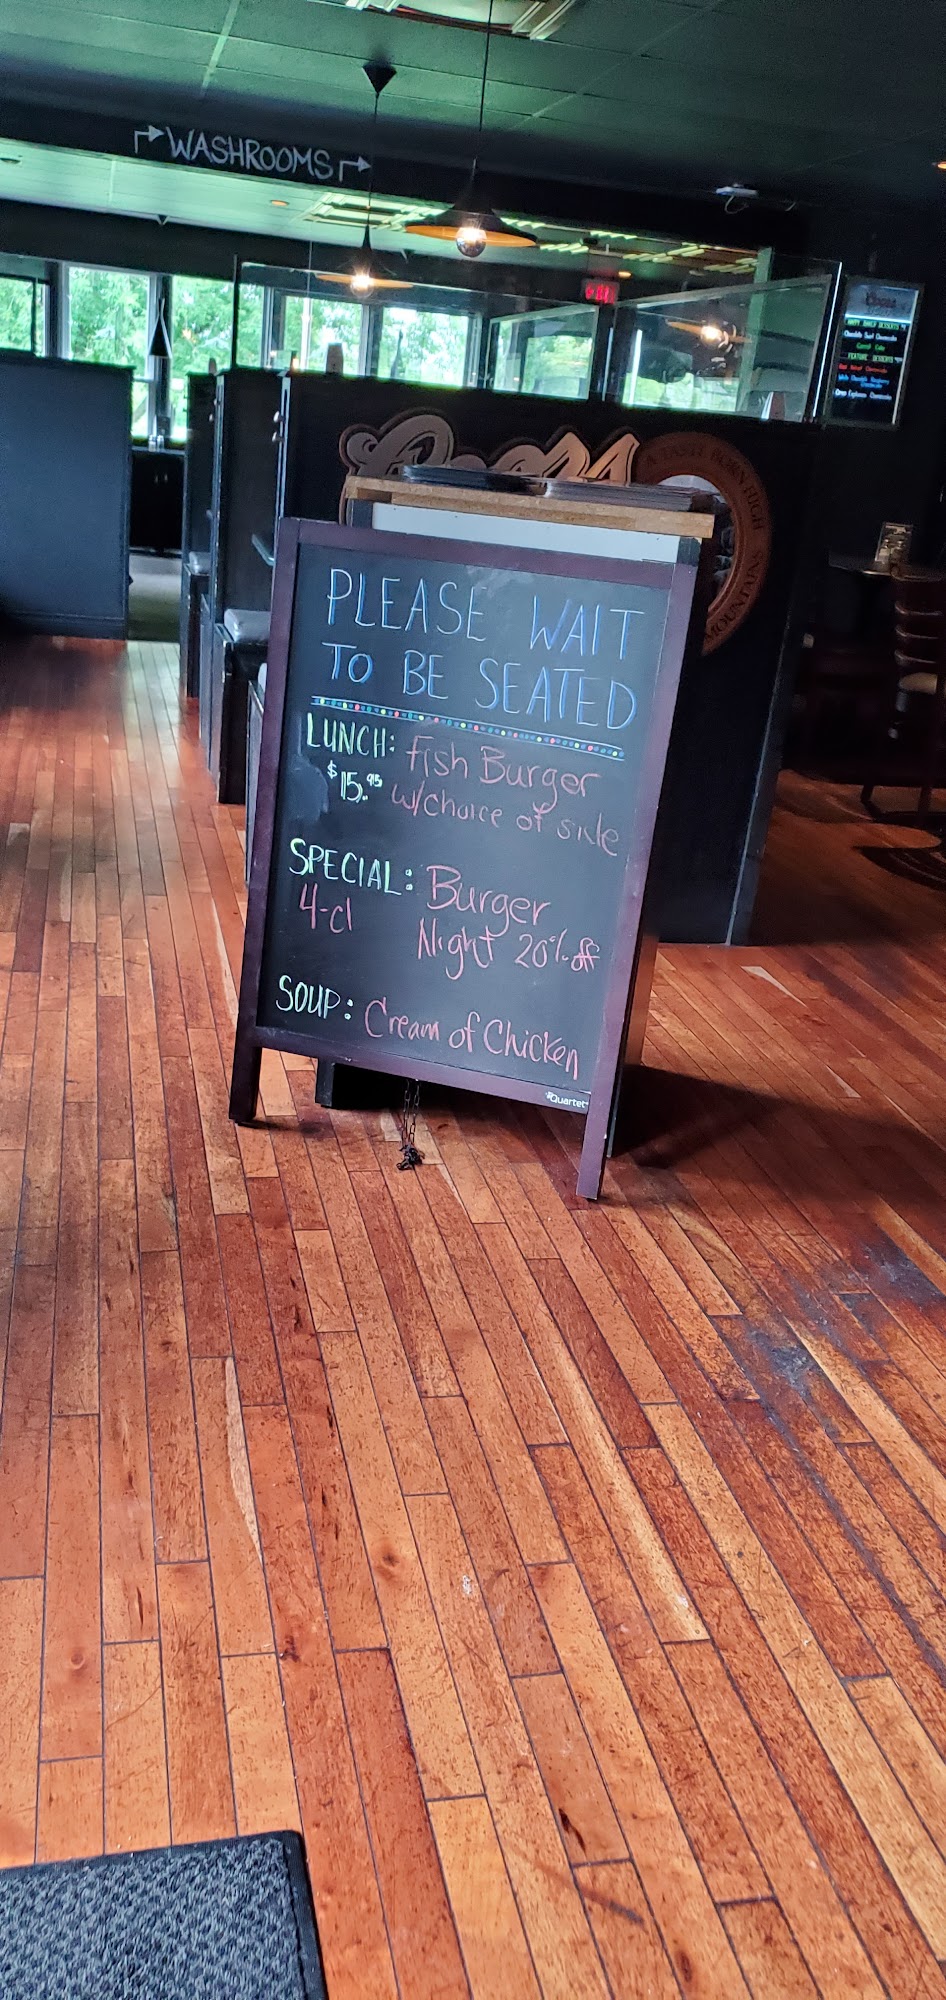 WASHROOMS
Coors
A TASTE BORN HIGH
MOUNTAINS
PLEASE WAIT
TO BE SEATED
LUNCH: Fish Burger
$15.95 w/choice of side
SPECIAL: Burger
4-cl Night 20% off
SOUP: Cream of Chicken
Quartet
FEATURE DESSERTS